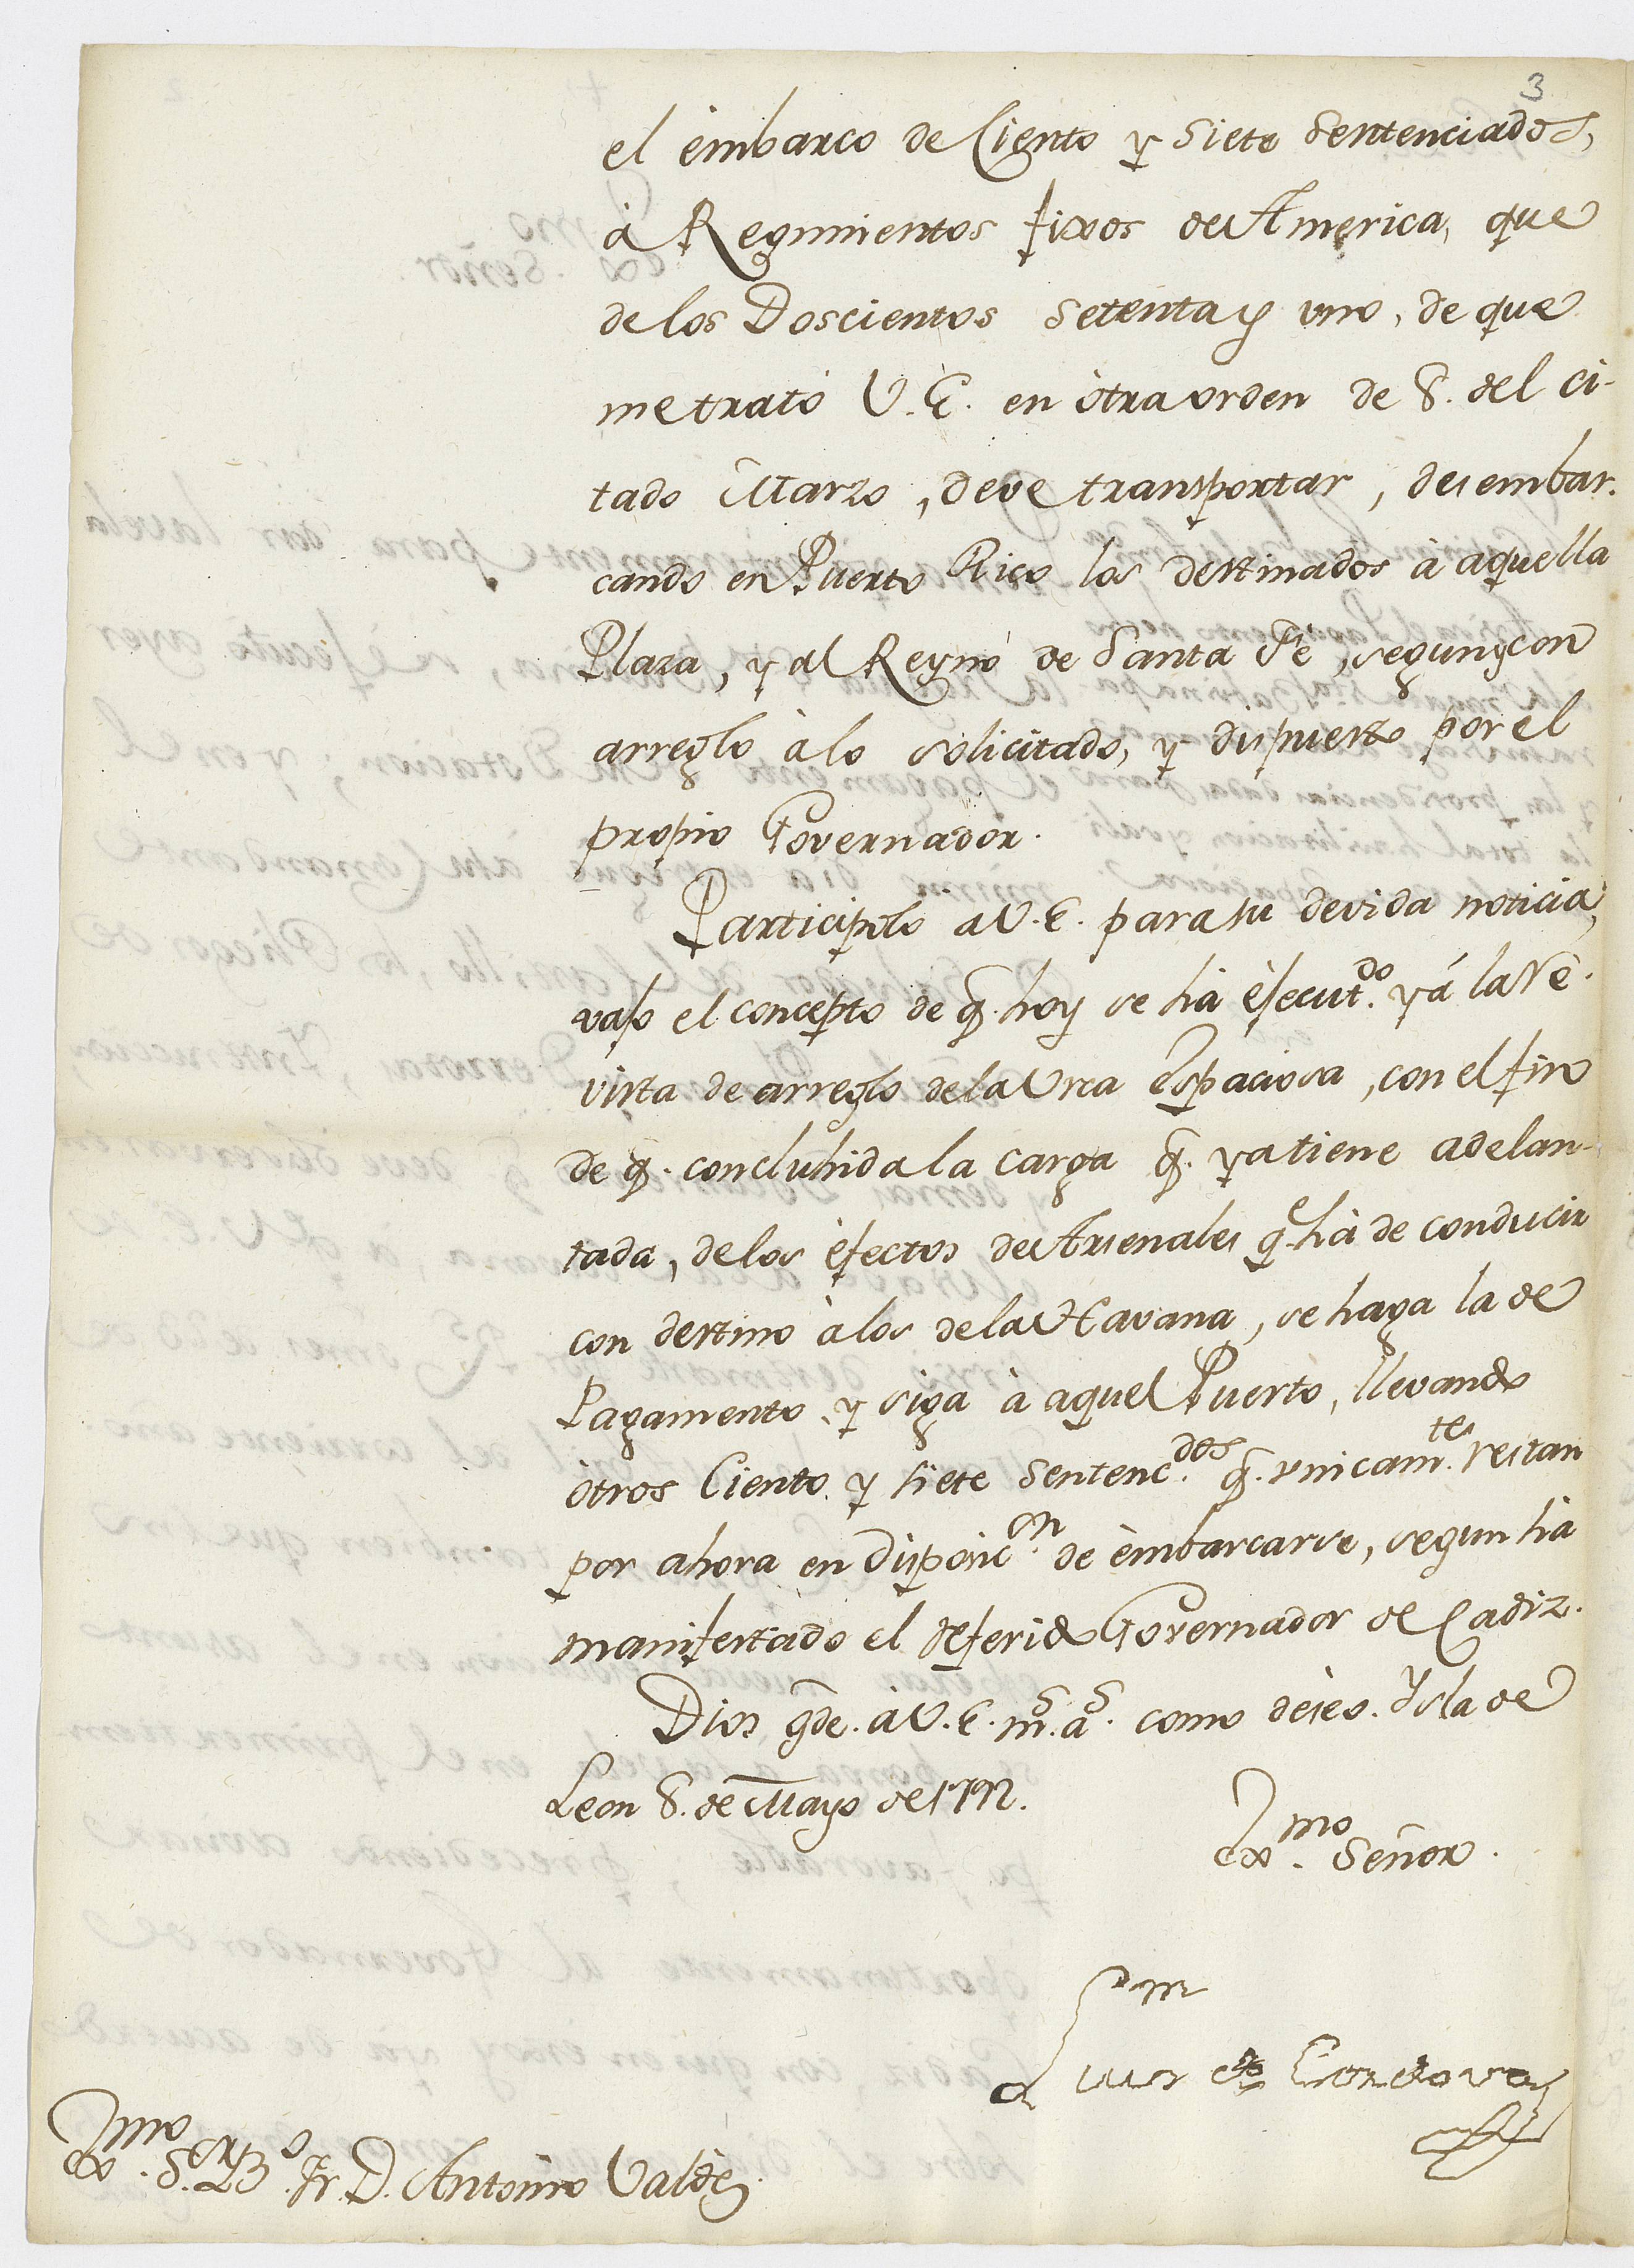 3
el embarco de Ciento y siete Sentenciados,
à Regimientos fixos de America, que
de los Doscientos setenta y uno, de que
me trató V. E. en òtra orden de 8. del ci-
tado Marzo, deve transportar, desembar-
cando en Puerto Rico los destinados à aquella
Plaza, y al Reyno de Santa Fé, segun y con
arreglo à lo solicitado, y dispuesto por el
propio Governador.
Participolo a V. E. para su devida noticia,
vajo el concepto de q. hoy se hà èjecut.do ya la Re-
vista de arreglo de la Urca Espaciosa, con el fin
de q. concluhida la carga q. ya tiene adelan-
tada, de los èfectos de Arsenales q.e hà de conducir
con destino à los de la Havana, se haga la de
Pagamento y siga à aquel Puerto, llevando
òtros Ciento y siete Sentenc.dos q. unicam.te restan
por ahora en disposic.on de èmbarcarse, segun hà
manifestado el referido Governador de Cadiz.
Dios gde. à V. E. m.s a.s como deseo. Ysla de
Leon 8. de Mayo de
Ex.mo Señor.
Luis de Cordova
Ex.mo S.or B.o Fr. D. Antonio Valdes